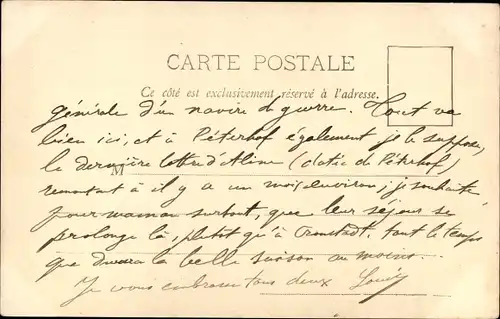 CARTE POSTALE
Ce côté est exclusivement réservé à l'adresse.
générale d'un navire de guerre. Tout va
bien ici, et à Péterhof également je le suppose,
la dernière lettre d'Aline (datée de Péterhof)
M
remontant à il y a un mois environ; je souhaite
pour maman surtout, que leur séjour se
prolonge là, plutôt qu'à Cronstadt, tout le temps
que durera la belle saison au moins...
Je vous embrasse tous deux Louis